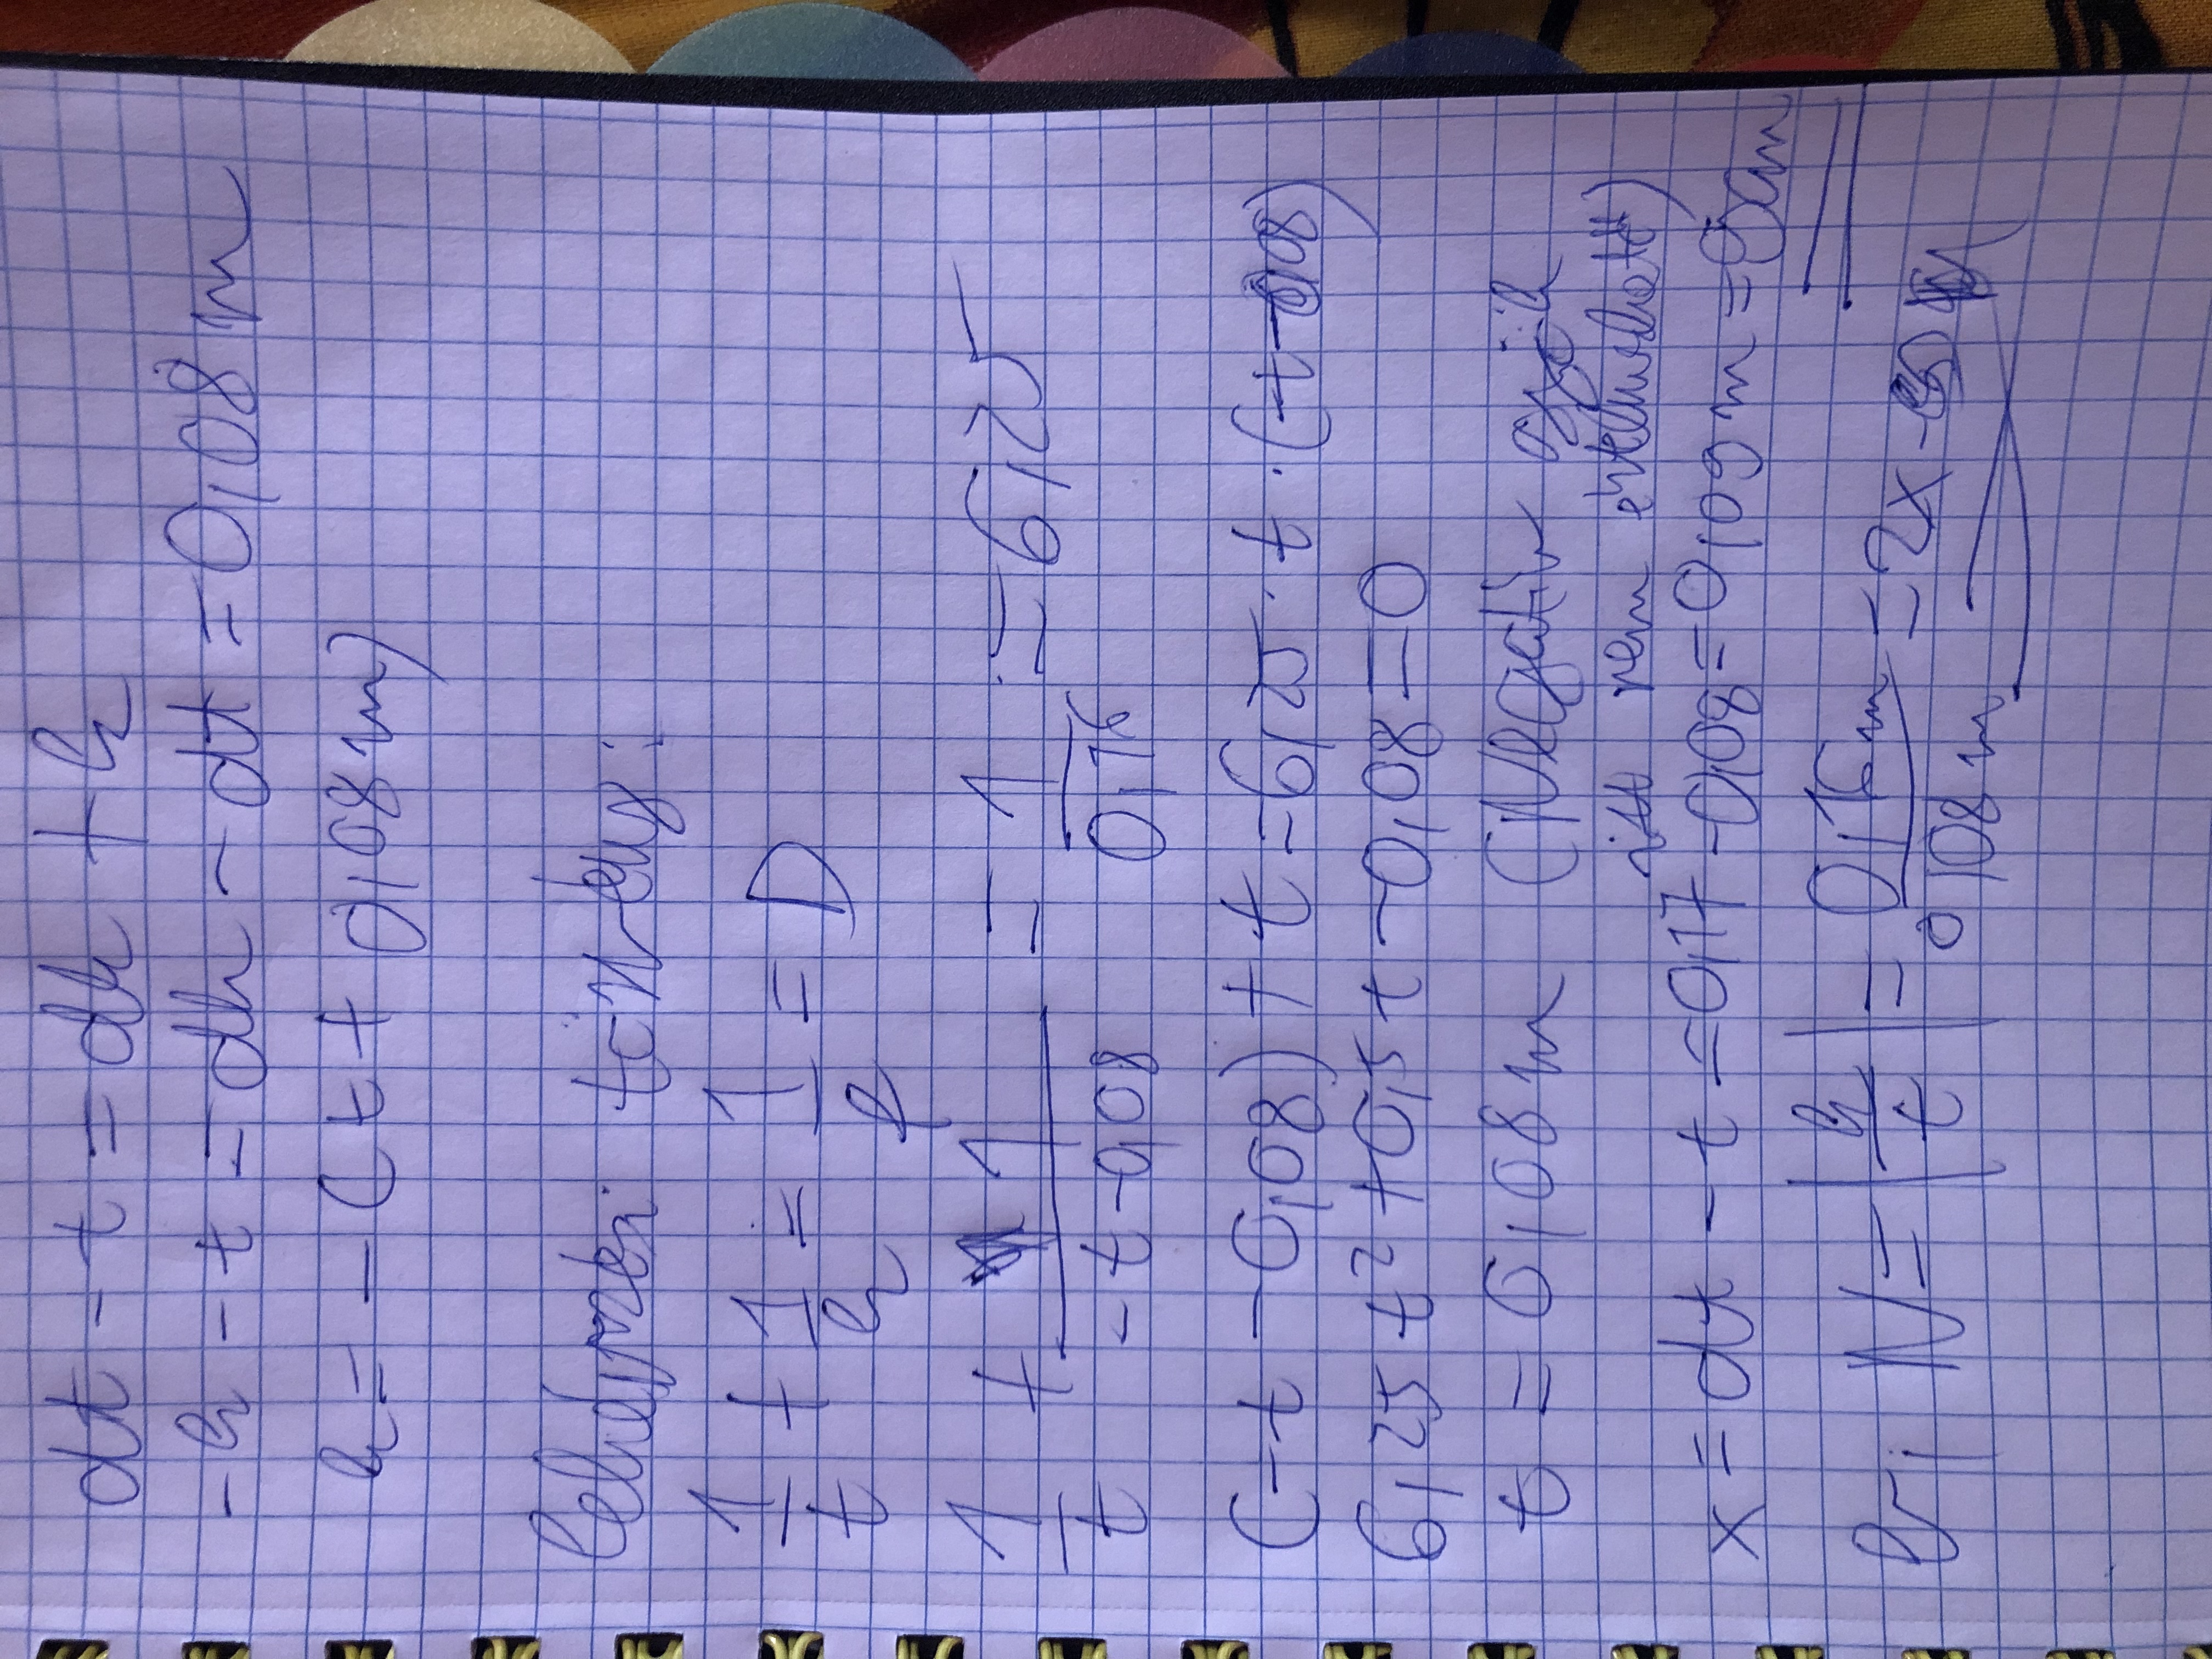 dt - t = dk + k
- k - t = dk - dt = 0,08 m
k = - (t + 0,08 m)
törvény:
1/t + 1/k = 1/f = D
1/t + 1/(-t-0,08) = 1/0,16 = 6,25
(-t - 0,08) + t = 6,25 · t · (-t-0,08)
6,25 t² + 0,5 t - 0,08 = 0
t = 0,08 m (Negatív gyök
itt nem értelmezhető)
x = dt - t = 0,17 - 0,08 = 0,09 m = 9 cm
b, N = |k/t| = 0,16 m / 0,08 m = 2x